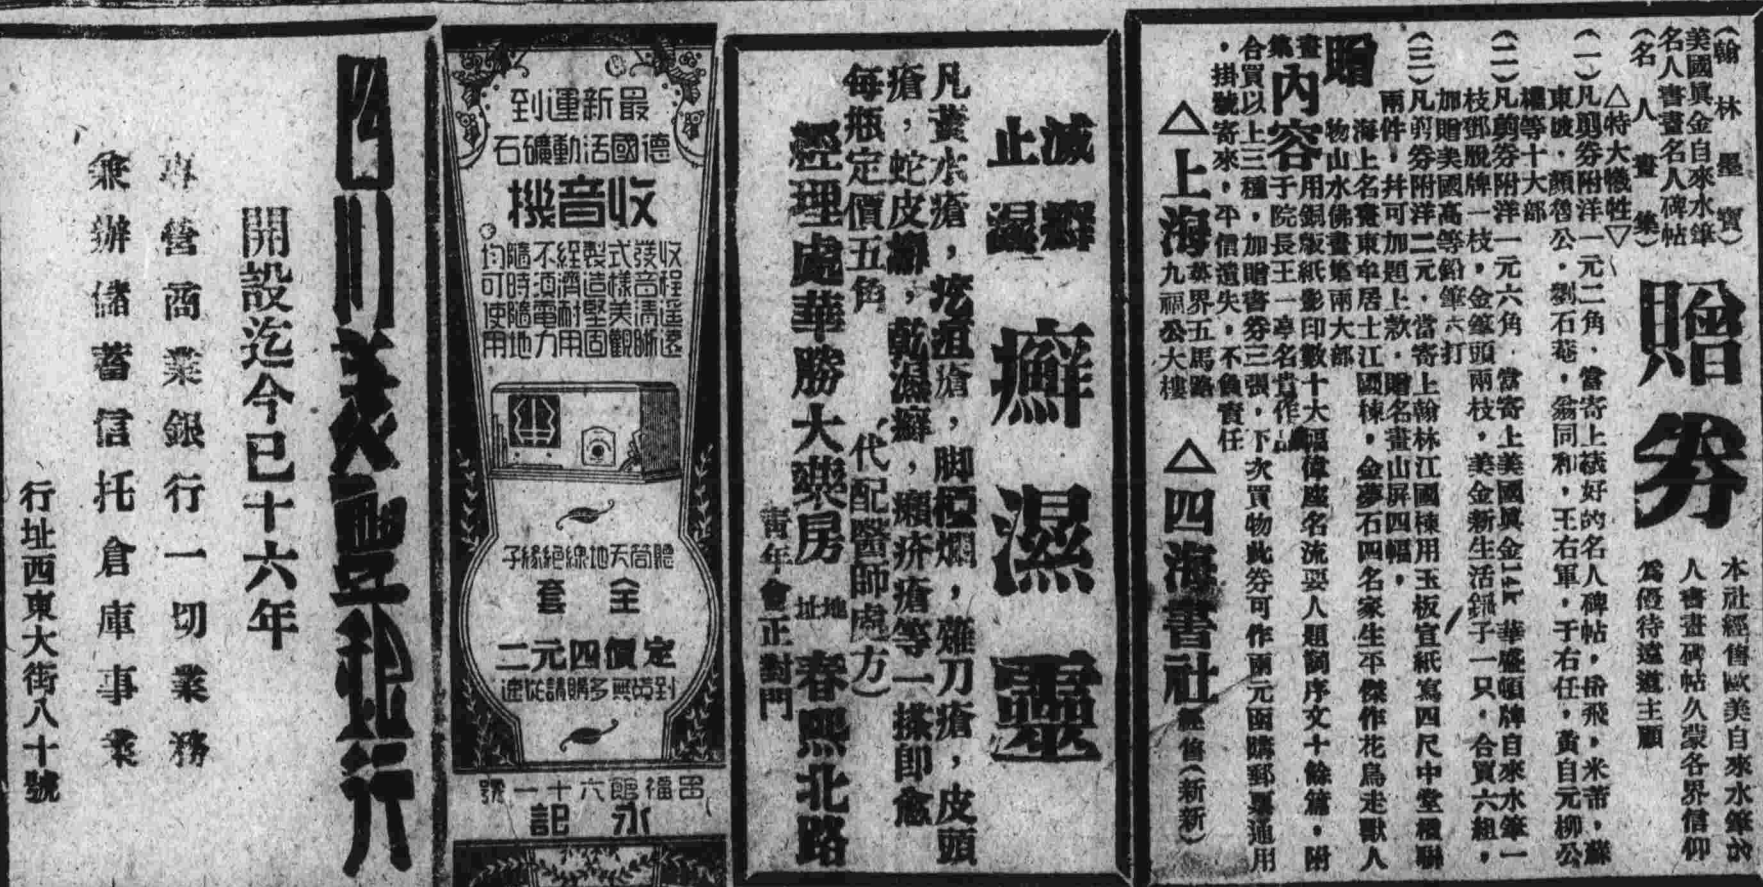 贈券
(翰林墨寶)
美國眞金自來水筆
名人書畫名人碑帖
(名人畫集)
△特大犧牲▽
本社經售歐美自來水筆
人書畫碑帖久蒙各界信仰
爲優待遠道主顧
(一)凡剪券附洋一元二角，當寄上裱好的名人碑帖，岳飛，米芾，蘇
東坡，顏魯公，劉石菴，翁同和，王右軍，于右任，黃自元柳公
權等十大部
(二)凡剪券附洋一元六角，當寄上美國眞金14k華盛頓牌自來水筆一
枝，鄧脫牌一枝，金筆頭兩枝，美金新生活鎖子一只，合買六組，
加贈美國高等鉛筆六打
(三)凡剪券附洋二元，當寄上翰林江國棟用玉板宣紙寫四尺中堂楹聯
兩件，并可加題上款，贈名畫山屏四幅，
海上名畫東傘居士江國棟，金夢石四名家生平傑作花鳥走獸人
物山水佛畫集兩大部
贈畫集內容
用銀版紙影印數十大幅偉座名流要人題詞序文十餘篇，附
于院長王一亭名賞作品
合買以上三種，加贈書券三張，下次買物此券可作兩元函購郵票通用
，掛號寄來，平信遺失，不負責任
△上海
英界五馬路
九福公大樓
△四海書社
經售(新新)
滅癬
止濕
癬濕靈
凡薑水瘡，疙疽瘡，脚椏爛，薙刀瘡，皮頭
瘡，蛇皮癬，乾濕癬，癩疥瘡等一搽即愈
每瓶定價五角
(代配醫師處方)
經理處華勝大藥房
地址
春熙北路
靑年會正對門
最新運到
德國活動礦石
收音機
收程遥遠
發音清晰
式樣美觀
製造堅固
經濟耐用
不洒電力
隨時隨地
均可使用
聽筒天地線絕緣子
全套
定價四元二
到貨無多購請從速
田福館六十一號
永記
四川美豐銀行
開設迄今已十六年
專營商業銀行一切業務
兼辦儲蓄信托倉庫事業
行址西東大街八十號